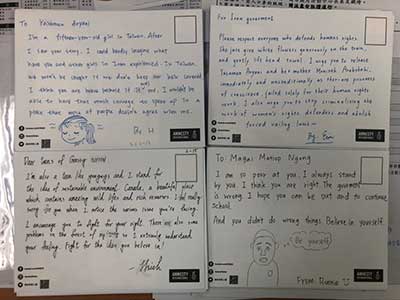 To Yasaman Aryani
I'm a fifteen-year-old girl in Taiwan. After
I saw your story, I could hardly imagine what
have you and other girls in Iran experienced. In Taiwan,
we won't be caught if we don't keep our hair covered
I think you are brave because if it me, I wouldn't be
able to have that much courage to speak up in a
place that most of people doesn't agree when me.
By H
For Iran government
Please respect everyone who defends human rights.
She just give white flowers generously on the train,
and gently lift head towel. I urge you to released
Yasaman Aryani and her mother Monireh Arabshahi,
immediately and unconditionally as they are prisoners
of conscience, jailed solely for their human rights
work. I also urge you to stop criminalising the
work of women's rights defenders and abolish
forced veiling laws
By Eva
AMNESTY
INTERNATIONAL
Dear teens of Grassy Narrows
I'm also a teen like youguys and I stand for
the idea of sustainable environment. Canada, a beautiful place
which contains amazing wild lifes and rich resources. I feel really
sorry for you when I notice the worries issue you're facing.
I encourage you to fight for your right. There're also some
problems in the forest of my city so I extremely understand
your feeling. Fight for the idea you believe in!
AMNESTY
INTERNATIONAL
To: Magai Matiop Ngong
I am so poor at you. I always stand
by you. I think you are right. The government
is wrong. I hope you can be out and to continue
school.
And you didn't do wrong things. Believe in yourself.
Be yourself
From: Reene
AMNESTY
INTERNATIONAL